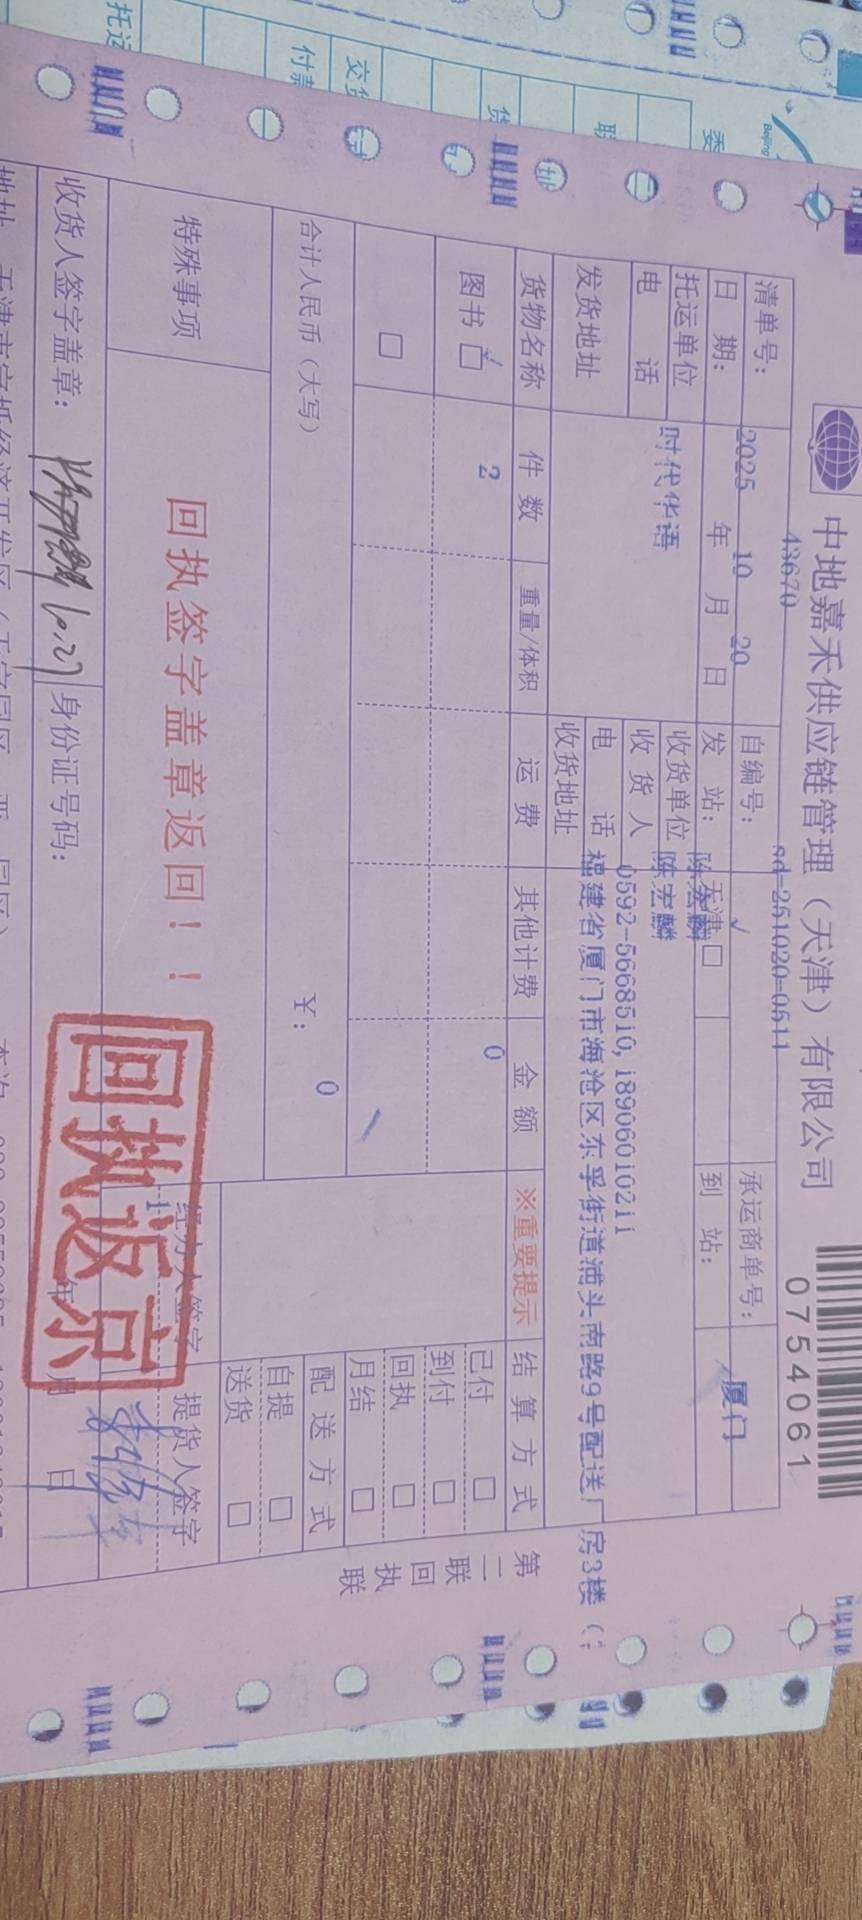 中地嘉禾供应链管理（天津）有限公司
0754061
清单号： 43670 自编号： sd-251020-0511 承运商单号：
日 期： 2025 年 10 月 20 日 发 站： 天津 □ ✓ 到 站： 厦门
托运单位 时代华语 收货单位 陈宏麟
电 话 收 货 人 陈宏麟
发货地址 电 话 0592-5668510,18906010211
收货地址 福建省厦门市海沧区东孚街道浦头南路9号配送厂房3楼（
货物名称 件 数 重量/体积 运 费 其他计费 金 额 ※重要提示 结 算 方 式
图书 □ ✓ 2 0 已付 □
到付 □
□ 回执 □
月结 □
合计人民币（大写） ￥： 0 配 送 方 式
自提 □
送货 □
特殊事项 回执签字盖章返回！！
经办人签字 提货人签字
1
收货人签字盖章： 10.27 身份证号码： 年 月 日
回执返京
第二联 回执联
托运
付款
交货
货
联
委
Beijing